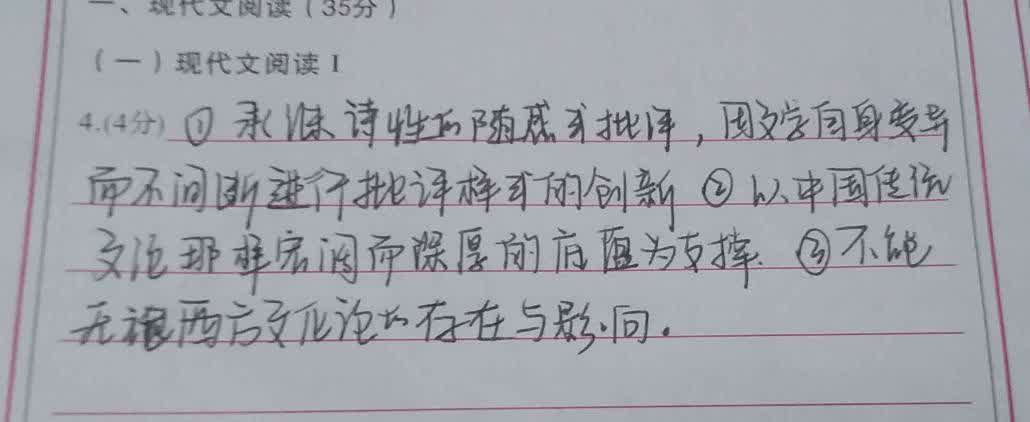 一、现代文阅读（35分）
（一）现代文阅读 I
4.(4分) ① 承继诗性的随感式批评，因文学自身变异
而不间断进行批评样式的创新 ② 以中国传统
文论那样宏阔而深厚的底蕴为支撑. ③ 不能
无视西方文化论的存在与影响。